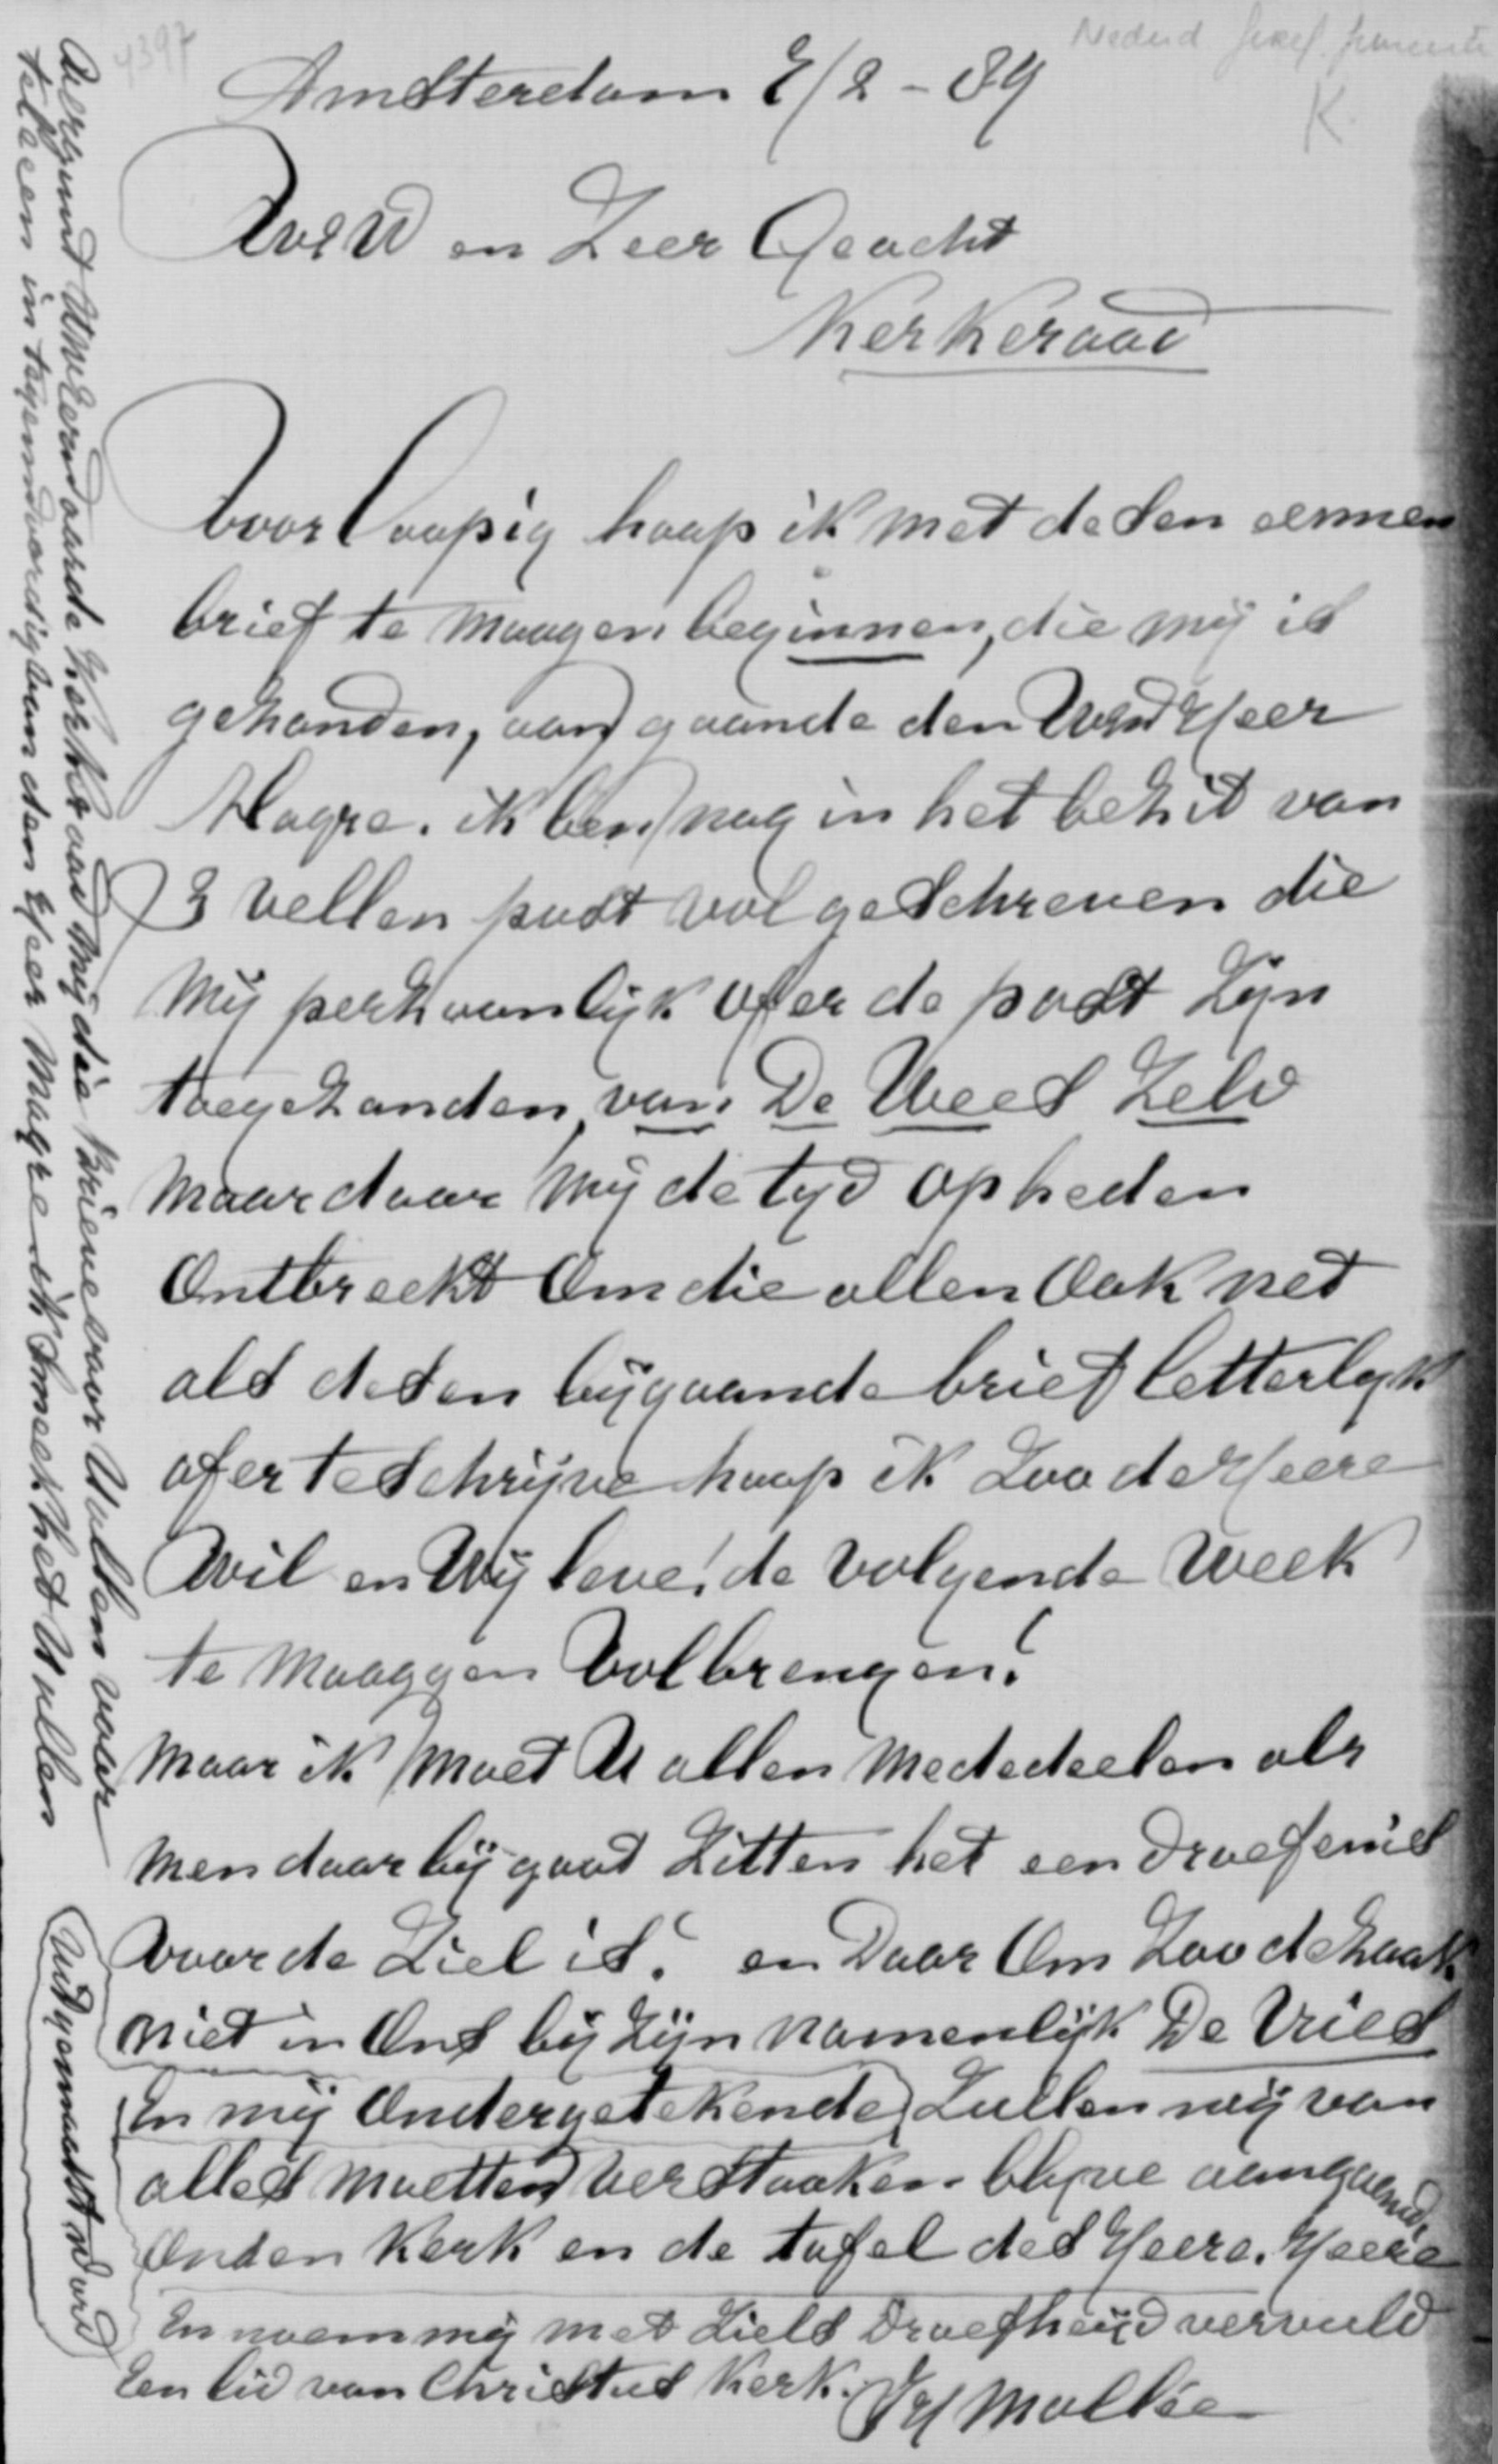 4397
Nederd Geref. Gemeente
K.
Amsterdam 2/2 - 89
WelEd en Zeer Geacht
Kerkeraad
Voorloopig hoop ik met desen eennen
brief te moogen beginnen, die mij is
gezonden, aan gaande den WEd Heer
Magre. ik ben nog in het bezit van
3 vellen post vol geschreven die
mij perzoonlijk ofer de post zijn
toegezonden, van De Weed zelv
maar daar mij de tyd op heden
ontbreekt om die allen ook net
als desen bijgaande brief letterlyk
ofer te schrijve hoop ik zoo de Heere
wil en wij leve! de volgende week
te mooggen volbrengen!
maar ik moet U allen mededeelen als
men daar bij gaat zitten het een droefenis
voor de ziel is! en daar om zoo de zaak
niet in ons bij zijn namenlijk De Vries
En mij ondergetekende zullen wij van
alles moetten verstooken blijve aangaande
onsen kerk en de tafel des Heere. Heere
En noem mij met ziels droefheijd vervuld
Een lid van Christus kerk. JH Mollée
vergunt UwEerwaarde Kerkeraad mij die Brieve voor U allen voor
telezen in tegenwoordig van den Heer Magre ik smeek het U allen
uitgemaakt word